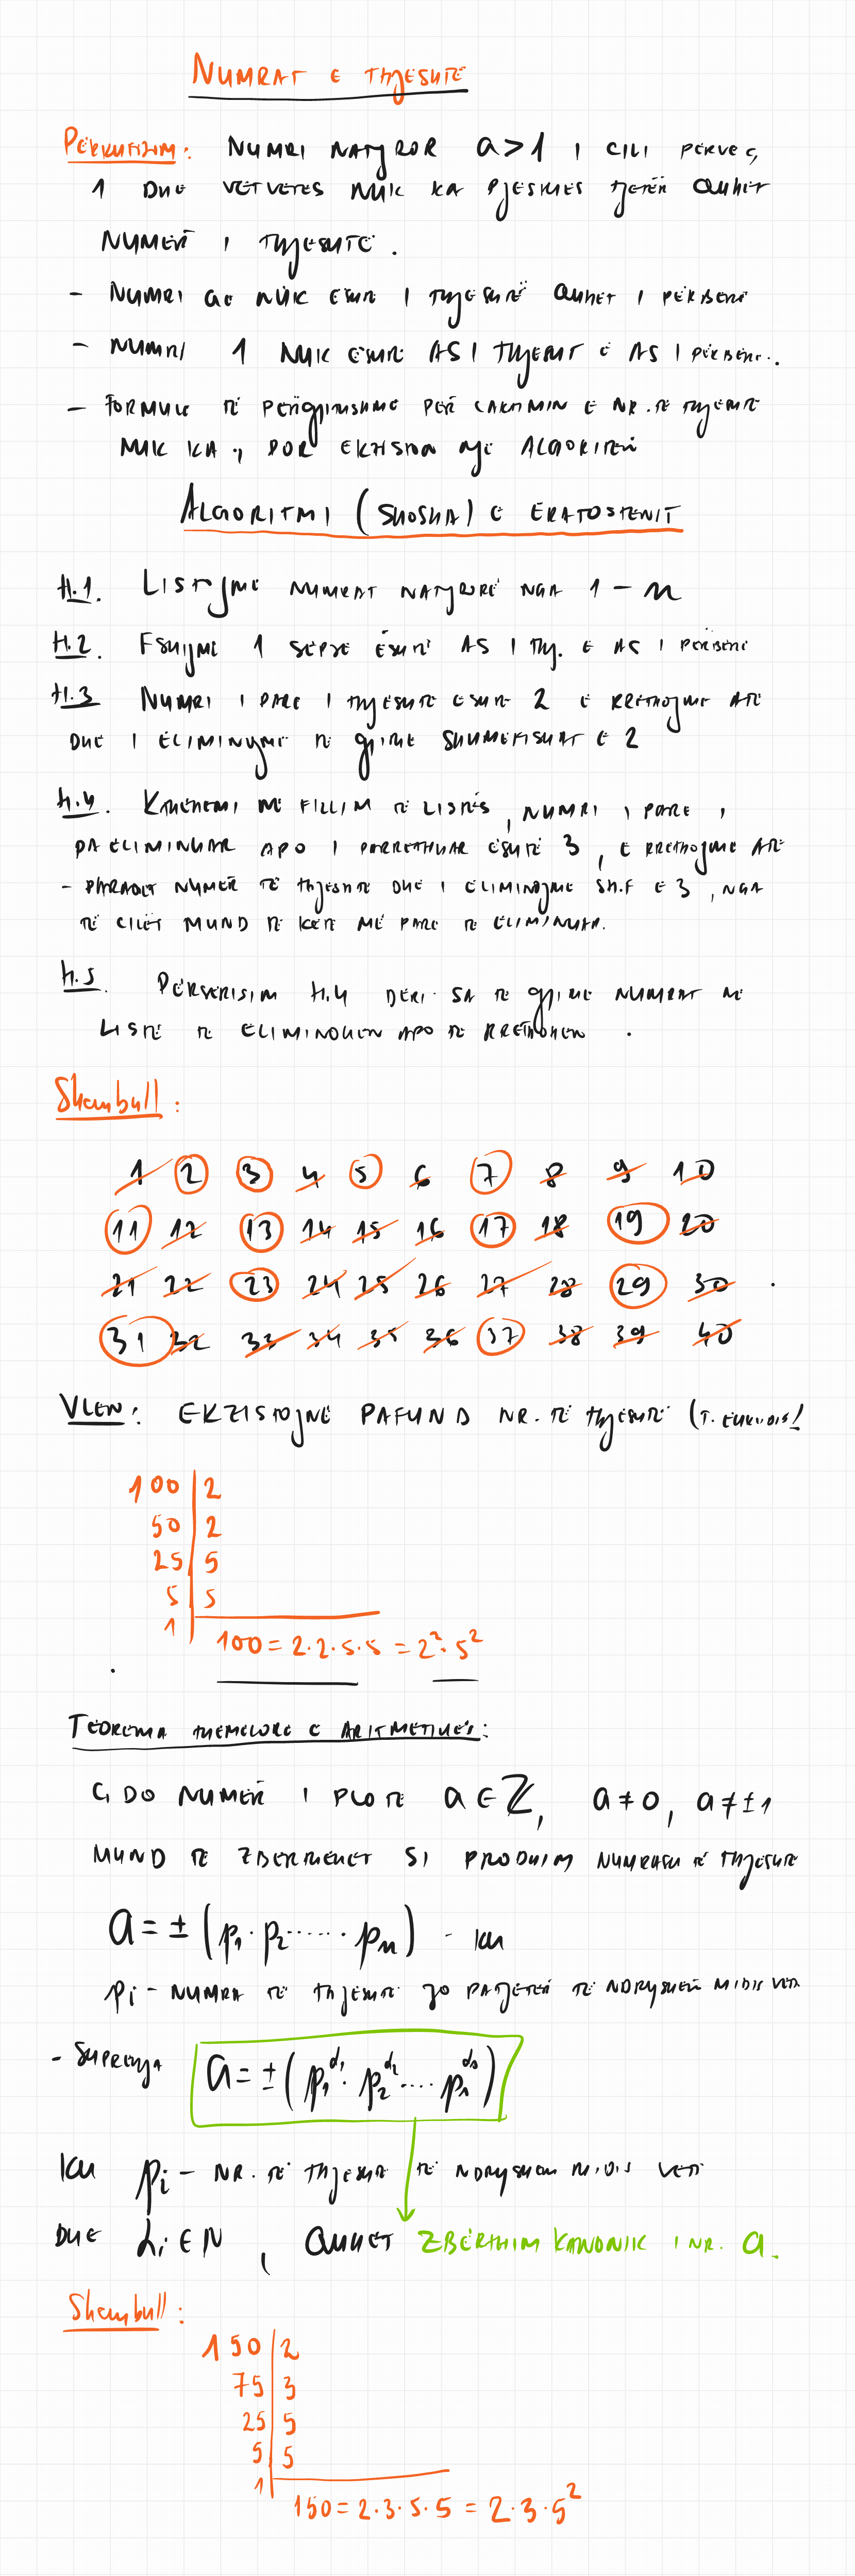 NUMRAT E THJESHTË
PËRKUFIZIM: NUMRI NATYROR a > 1 I CILI PËRVEÇ
1 DHE VETVETES NUK KA PJESTUES TJETËR QUHET
NUMËR I THJESHTË.
- NUMRI QË NUK ËSHTË I THJESHTË QUHET I PËRBËRË
- NUMRI 1 NUK ËSHTË AS I THJESHT E AS I PËRBËRË.
- FORMULË TË PËRGJITHSHME PËR CAKTIMIN E NR. TË THJESHTË
NUK KA, POR EKZISTON NJË ALGORITËM
ALGORITMI (SHOSHA) E ERATOSTENIT
H.1. LISTOJMË NUMRAT NATYRORË NGA 1 - n
H.2. FSHIJMË 1 SEPSE ËSHTË AS I THJ. E AS I PËRBËRË
H.3 NUMRI I PARË I THJESHTË ËSHTË 2 E RRETHOJMË ATË
DHE I ELIMINOJMË TË GJITHË SHUMËFISHAT E 2
H.4. KTHEHEMI NË FILLIM TË LISTËS, NUMRI I PARË I
PA ELIMINUAR APO I PARRETHUAR ËSHTË 3, E RRETHOJMË ATË
- PARAQET NUMËR TË THJESHTË DHE I ELIMINOJMË SH.F E 3, NGA
TË CILËT MUND TË KETË MË PARË TË ELIMINUAR.
H.5 PËRSËRISIM H.4 DERI SA TË GJITHË NUMRAT NË
LISTË TË ELIMINOHEN APO TË RRETHOHEN.
Shembull:
1 2 3 4 5 6 7 8 9 10
11 12 13 14 15 16 17 18 19 20
21 22 23 24 25 26 27 28 29 30
31 32 33 34 35 36 37 38 39 40
VLEN: EKZISTOJNË PAFUND NR. TË THJESHTË (T. EUKLIDIT)
100 | 2
50 | 2
25 | 5
5 | 5
1
100 = 2·2·5·5 = 2²·5²
TEOREMA THEMELORE E ARITMETIKËS:
ÇDO NUMËR I PLOTË a ∈ ℤ, a ≠ 0, a ≠ ±1
MUND TË ZBËRTHEHET SI PRODHIM NUMRASH TË THJESHTË
a = ± (p₁ · p₂ ····· pₙ) - ku
pi - NUMRA TË THJESHTË JO PATJETËR TË NDRYSHËM MIDIS VETI
a = ± (p₁^α₁ · p₂^α₂ .... pₛ^αₛ)
ku pi - NR. TË THJESHTË TË NDRYSHËM MIDIS VETI
DHE αi ∈ N, QUHET ZBËRTHIM KANONIK I NR. a.
Shembull:
150 | 2
75 | 3
25 | 5
5 | 5
1
150 = 2·3·5·5 = 2·3·5²